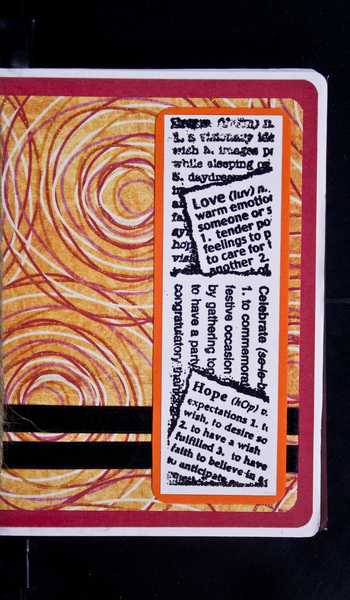 (drēm) n.
1. a visionary ide
wish b. images pr
while sleeping or
3. daydream
Love (luv) n.
warm emotion
someone or s
1. tender
feelings to
to care for
another 2.
Celebrate (se-le-b
1. to commemorat
festive occasion
by gathering tog
to have a party
congratulatory
Hope (hOp) v.
expectations 1. t
wish, to desire so
2. to have a wish
fulfilled 3. to have
faith to believe in a
to anticipate